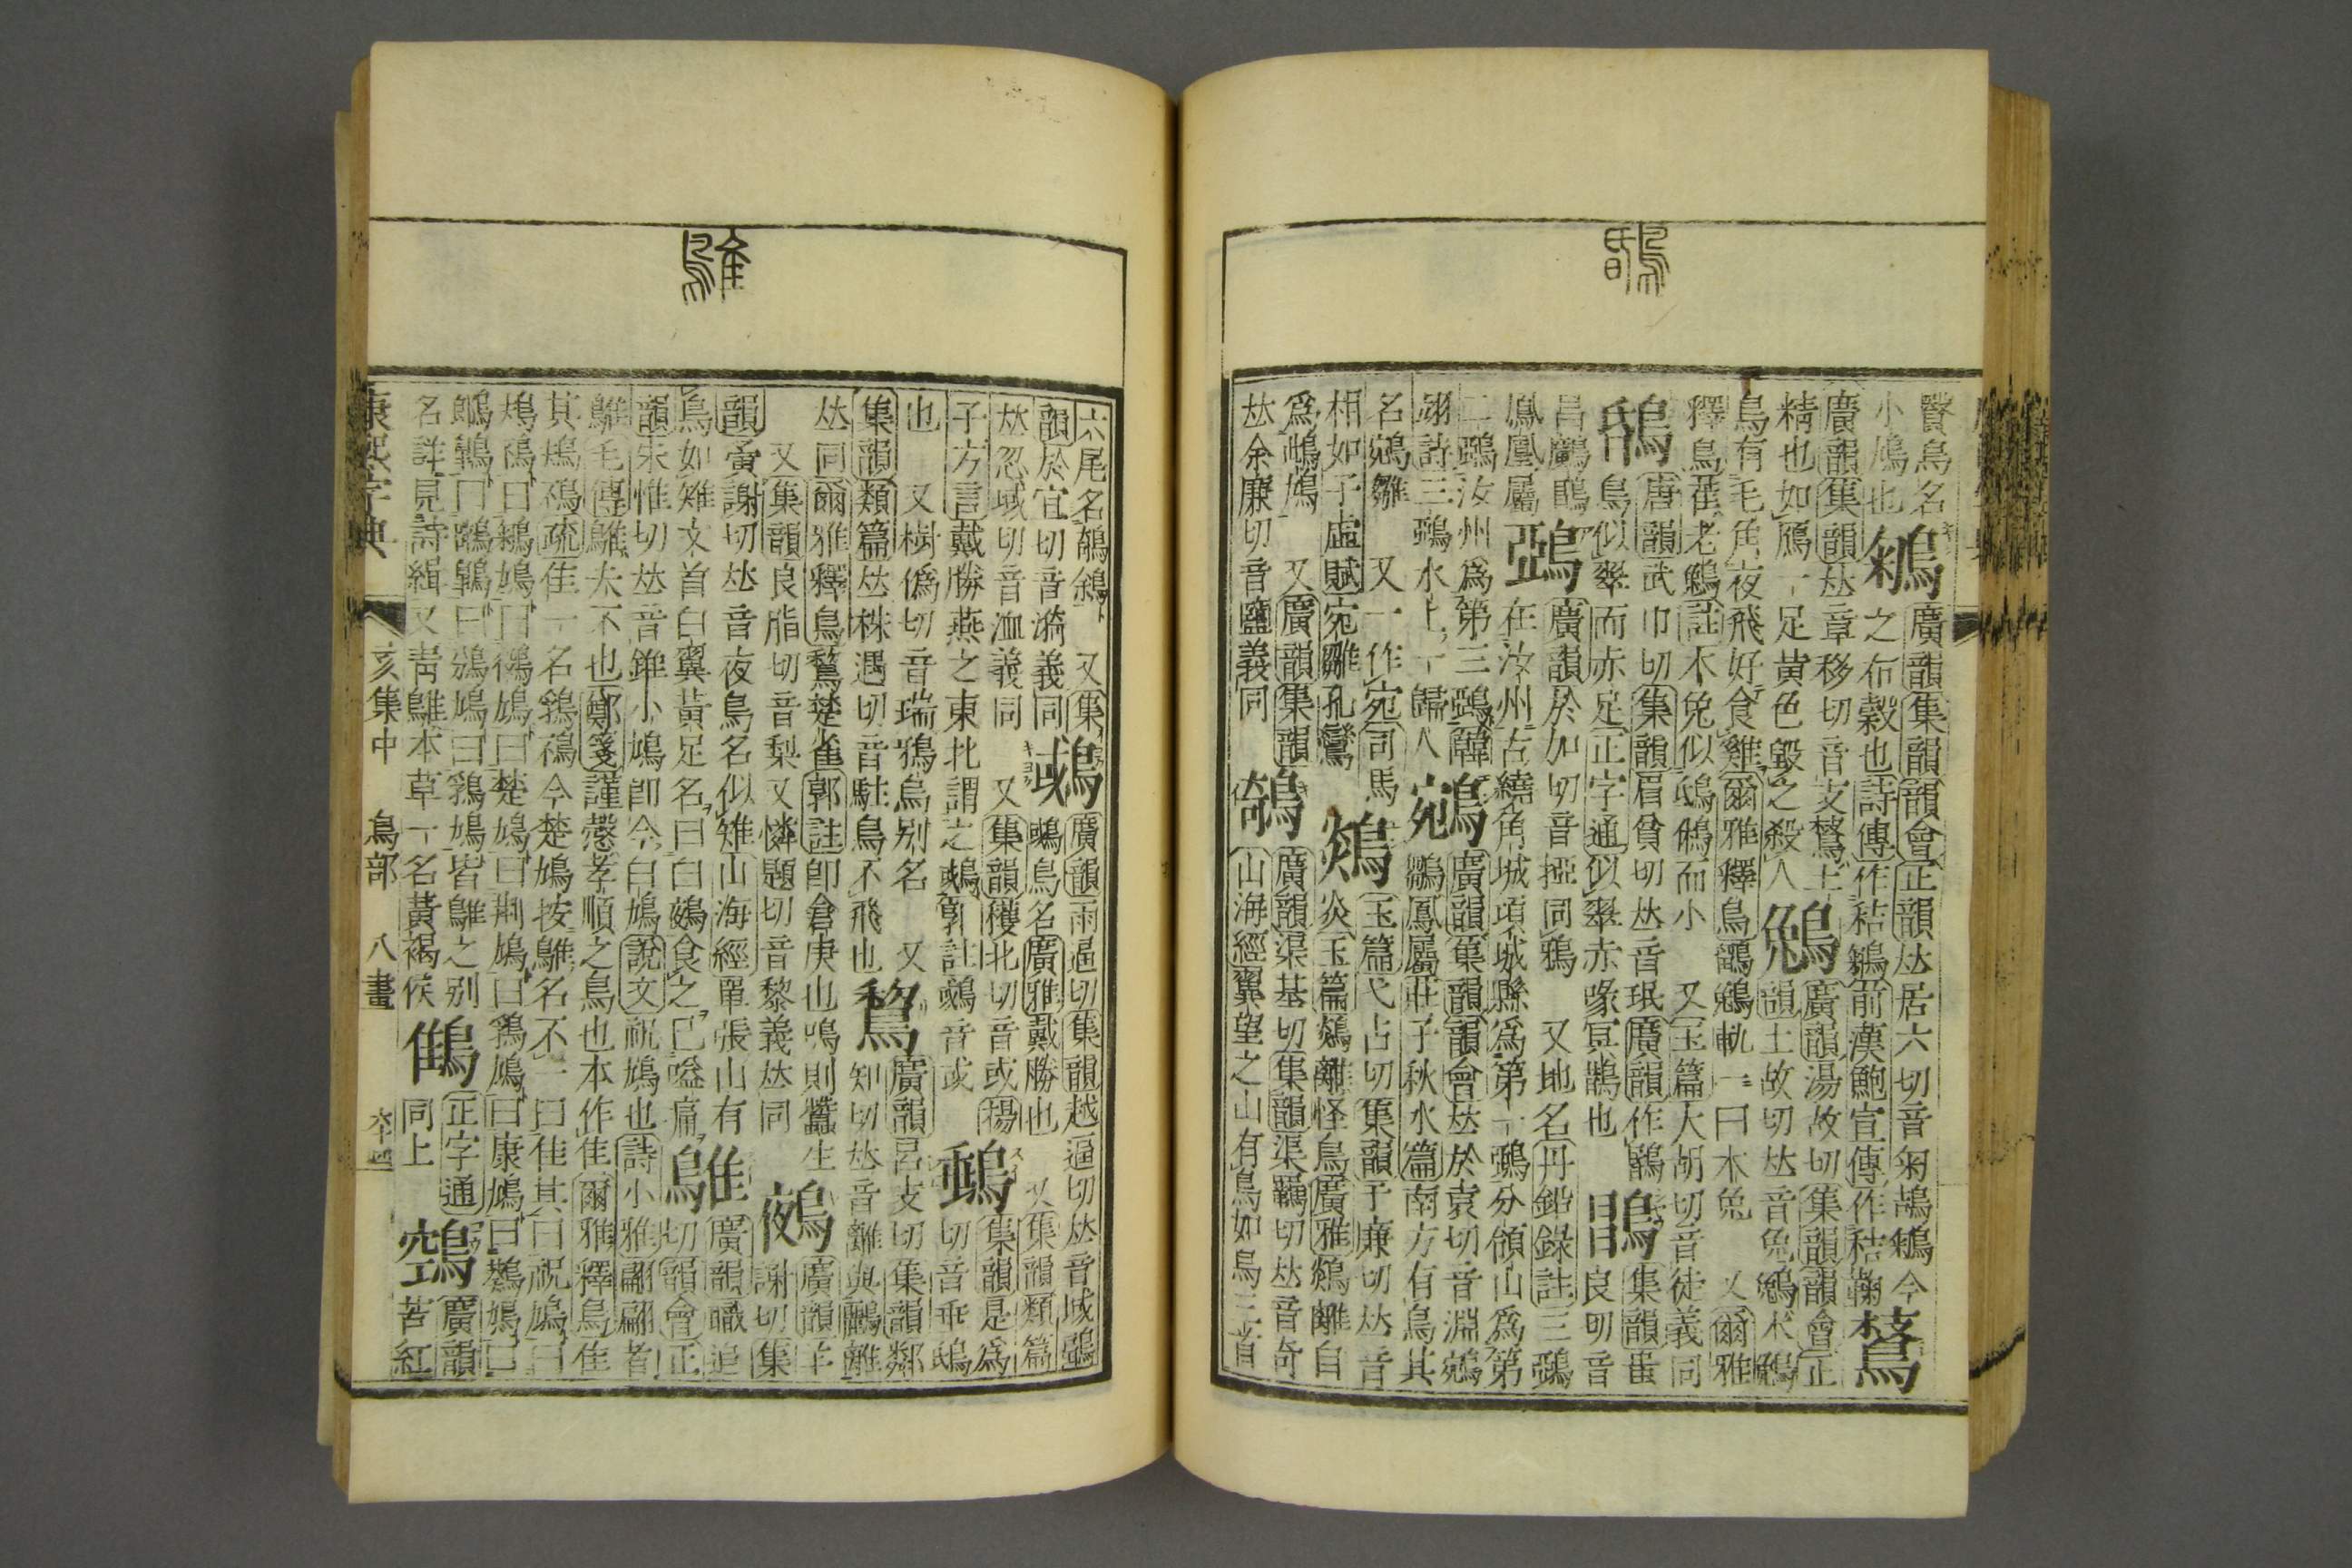 鷻鳥名
小鳩也
鵴
廣韻集韻韻會正韻𠀤居六切音匊鴶鵴今
之布穀也詩傳作秸鞠前漢鮑宣傳作秸鞠
鳷
廣韻集韻𠀤章移切音支鷔土
精也如鴈一足黃色毀之殺人
鵵
廣韻湯故切集韻韻會正
韻土故切𠀤音兔鵵木鵵
鳥有毛角夜飛好食雞爾雅釋鳥鸛鵵軌一曰木兔
又爾雅
釋鳥萑老鵵註木兔似鴟鵂而小
又玉篇大胡切音徒義同
鴖
唐韻武巾切集韻眉貧切𠀤音珉廣韻作鷻
鳥似翠而赤足正字通似翠赤喙冥鵲也
鵖
集韻蚩
良切音
昌鸘鵖
鳳凰屬
鵶
廣韻於加切音椏同鴉
又地名丹鉛錄註三鵶
在汝州古繞角城項城縣爲第一鵶分嶺山爲第
二鵶汝州爲第三鵶韓
翊詩三鵶水上一歸人
鵷
廣韻集韻韻會𠀤於袁切音淵鵷
鶵鳳屬莊子秋水篇南方有鳥其
名鵷鶵
又一作宛司馬
相如子虛賦宛雛孔鸞
䳺
玉篇弋占切集韻于廉切𠀤音
炎玉篇䳺離怪鳥廣雅䳺離自
爲牝牡
又廣韻集韻
𠀤余廉切音鹽義同
鵸
廣韻渠基切集韻渠羈切𠀤音奇
山海經翼望之山有鳥如烏三首
六尾名鵸鵌
又集
韻於宜切音漪義同
䳼
廣韻雨逼切集韻越逼切𠀤音域鵶
䳼鳥名廣雅戴勝也
又集韻類篇
𠀤忽域切音洫義同
又集韻穫北切音或揚
子方言戴勝燕之東北謂之䳼鶝註䳼音或
䳠
集韻是爲
切音垂鴟
也
又樹僞切音瑞鴉鳥別名
又
集韻類篇𠀤株遇切音駐鳥不飛也
鵹
廣韻呂支切集韻鄰
知切𠀤音離與鸝離
𠀤同爾雅釋鳥鵹楚雀郭註卽倉庚也鳴則蠶生
又集韻良脂切音梨又憐題切音黎義𠀤同
鵺
廣韻羊
謝切集
韻寅謝切𠀤音夜鳥名似雉山海經單張山有
鳥如雉文首白翼黃足名曰白鵺食之已嗌痛
鵻
廣韻職追
切韻會正
韻朱惟切𠀤音錐小鳩卽今白鳩說文祝鳩也詩小雅翩翩者
鵻毛傳鵻夫不也鄭箋謹慤孝順之鳥也本作隹爾雅釋鳥隹
其鳺鴀疏隹一名鶉鴀今楚鳩按鵻名不一曰隹其曰祝鳩曰
鳺鴀曰鵴鳩曰鵓鳩曰楚鳩曰荆鳩曰鶉鳩曰康鳩曰鷜鳩已
鵰鶉曰鷂鶉曰鴔鳩曰鶉鳩皆鵻之別
名詳見詩緝又青鵻本草一名黃褐侯
䳡
正字通
同上
鵼
廣韻
苦紅
康熙字典
亥集中
鳥部
八畫